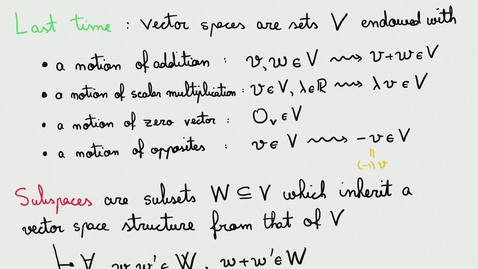 Last time : vector spaces are sets V endowed with
• a notion of addition : v, w ∈ V ⇝ v+w ∈ V
• a notion of scalar multiplication : v ∈ V, λ ∈ ℝ ⇝ λ v ∈ V
• a notion of zero vector : 0ᵥ ∈ V
• a notion of opposites : v ∈ V ⇝ -v ∈ V
||
(-1) v
Subspaces are subsets W ⊆ V which inherit a
vector space structure from that of V
∀ w, w' ∈ W, w+w' ∈ W